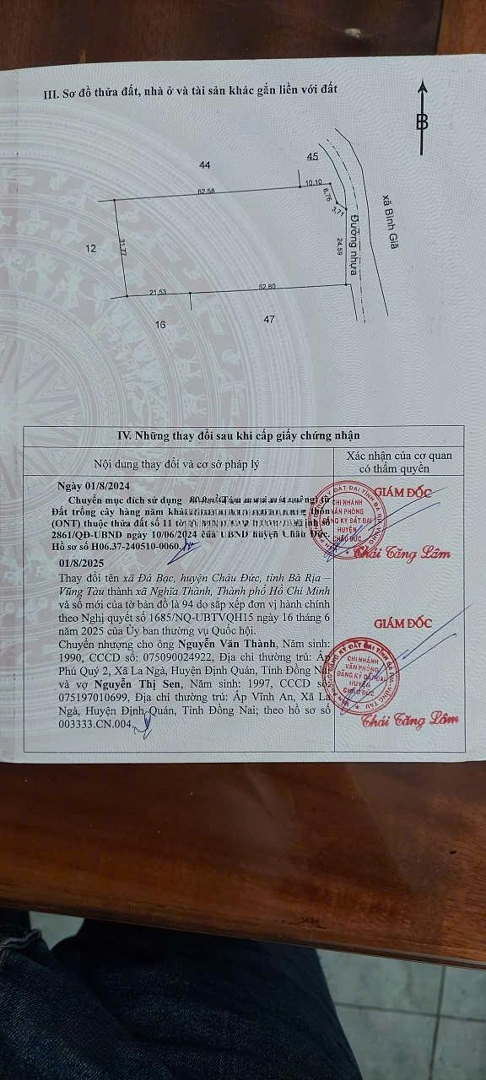 III. Sơ đồ thửa đất, nhà ở và tài sản khác gắn liền với đất
B
44
45
62,58
10,10
6,76
3,71
xã Bình Giã
12
31,77
24,59
Đường nhựa
21,53
52,80
16
47
IV. Những thay đổi sau khi cấp giấy chứng nhận
Nội dung thay đổi và cơ sở pháp lý
Xác nhận của cơ quan
có thẩm quyền
Ngày 01/8/2024
Chuyển mục đích sử dụng từ
Đất trồng cây hàng năm thôn
(ONT) thuộc thửa đất số 11 tờ số
2861/QĐ-UBND ngày 10/06/2024 của UBND huyện Châu Đức.
Hồ sơ số H06.37-240510-0060.
GIÁM ĐỐC
CHI NHÁNH
VĂN PHÒNG
ĐĂNG KÝ ĐẤT ĐAI
HUYỆN
CHÂU ĐỨC
Thái Tăng Lâm
01/8/2025
Thay đổi tên xã Đá Bạc, huyện Châu Đức, tỉnh Bà Rịa –
Vũng Tàu thành xã Nghĩa Thành, Thành phố Hồ Chí Minh
và số mới của tờ bản đồ là 94 do sắp xếp đơn vị hành chính
theo Nghị quyết số 1685/NQ-UBTVQH15 ngày 16 tháng 6
năm 2025 của Ủy ban thường vụ Quốc hội.
Chuyển nhượng cho ông Nguyễn Văn Thành, Năm sinh:
1990, CCCD số: 075090024922, Địa chỉ thường trú: Ấp
Phú Quý 2, Xã La Ngà, Huyện Định Quán, Tỉnh Đồng Nai
và vợ Nguyễn Thị Sen, Năm sinh: 1997, CCCD số:
075197010699, Địa chỉ thường trú: Ấp Vĩnh An, Xã La
Ngà, Huyện Định Quán, Tỉnh Đồng Nai; theo hồ sơ số
003333.CN.004.
GIÁM ĐỐC
CHI NHÁNH
VĂN PHÒNG
ĐĂNG KÝ ĐẤT ĐAI
HUYỆN
CHÂU ĐỨC
Thái Tăng Lâm